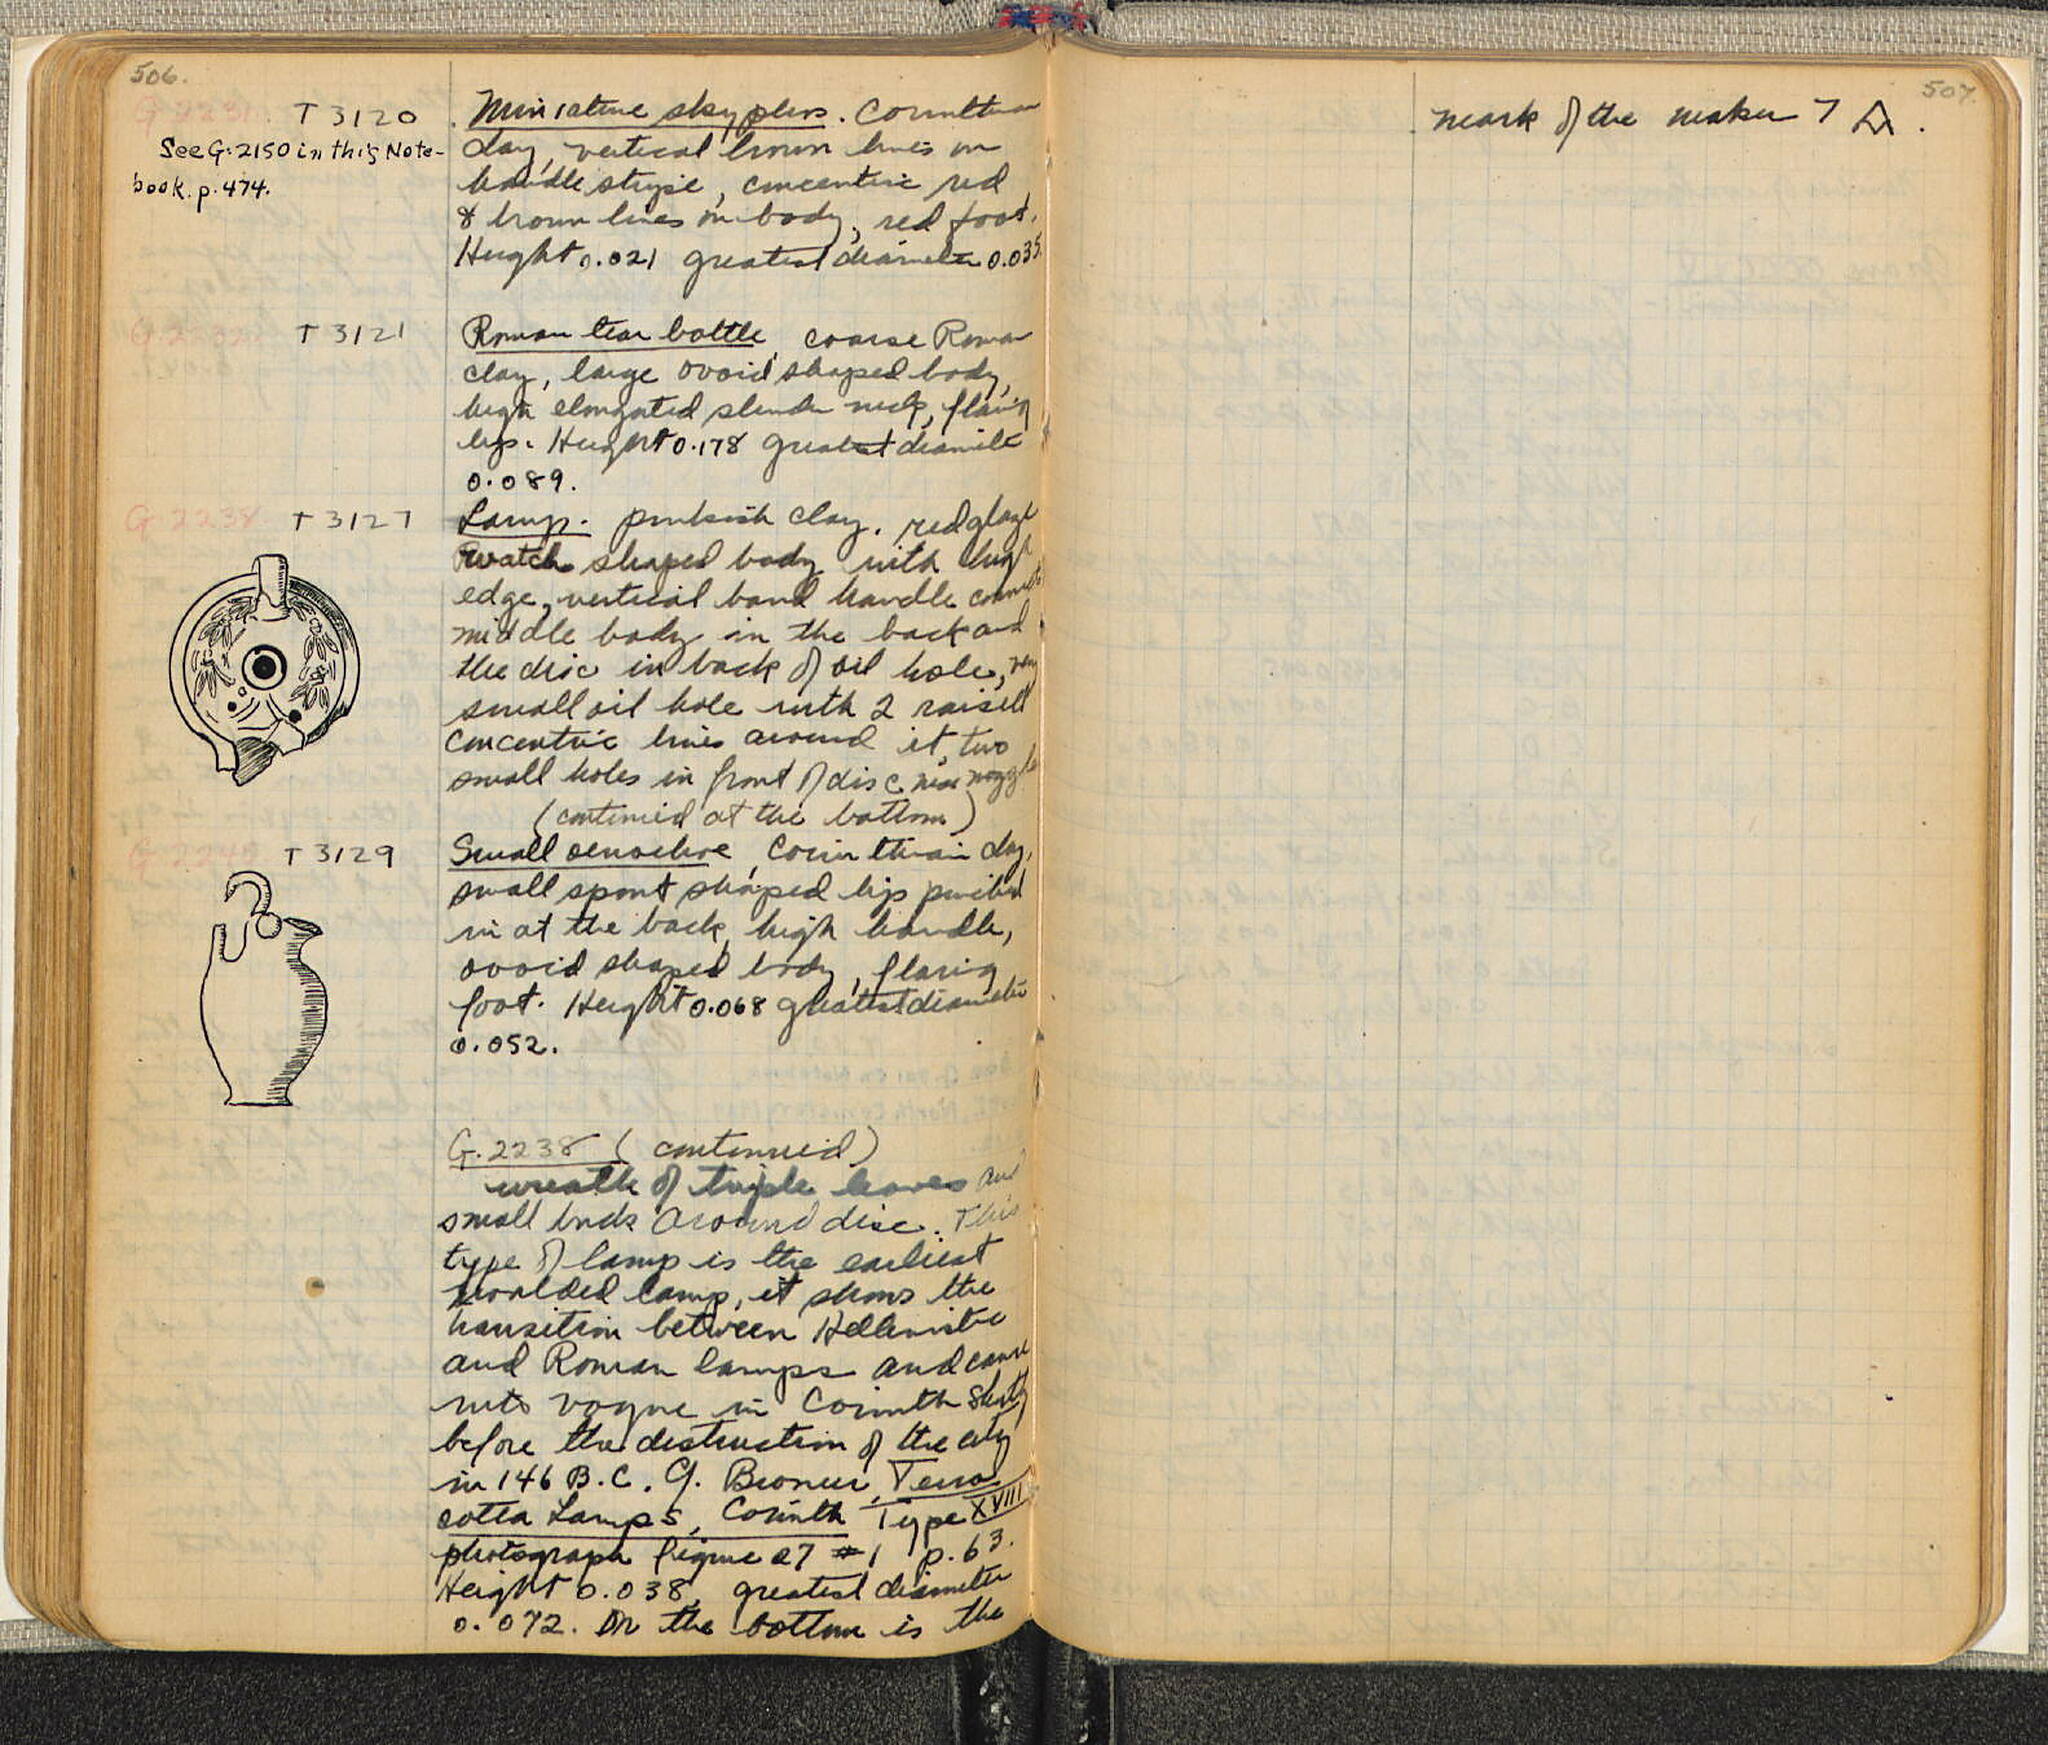 506.
G. 2231. T 3120 Miniature skyphos. Corinthian
See G. 2150 in this Note-
book. p. 474.
clay, vertical brown lines on
handle stripe, concentric red
& brown lines on body, red foot.
Height 0.021 greatest diameter 0.035.
G. 2232. T 3121 Roman tear bottle, coarse Roman
clay, large ovoid shaped body,
high elongated slender neck, flaring
lip. Height 0.178 greatest diameter
0.089.
G. 2238 T 3127 Lamp. pinkish clay. red glaze
watch shaped body with high
edge, vertical band handle connects
middle body in the back and
the disc in back of oil hole, very
small oil hole with 2 raised
concentric lines around it, two
small holes in front of disc near nozzle
(continued at the bottom)
T 3129 Small oenochoe, Corinthian clay,
small spout shaped lip pinched
in at the back, high handle,
ovoid shaped body, flaring
foot. Height 0.068 greatest diameter
0.052.
G. 2238 (continued)
wreath of triple leaves and
small buds around disc. This
type of lamp is the earliest
moulded lamp, it shows the
transition between Hellenistic
and Roman lamps and came
into vogue in Corinth shortly
before the destruction of the city
in 146 B.C. Cf. Broneer, Terra
cotta Lamps, Corinth Type XVIII
photograph figure 27 #1 p. 63.
Height 0.038, greatest diameter
0.072. On the bottom is the
507.
mark of the maker